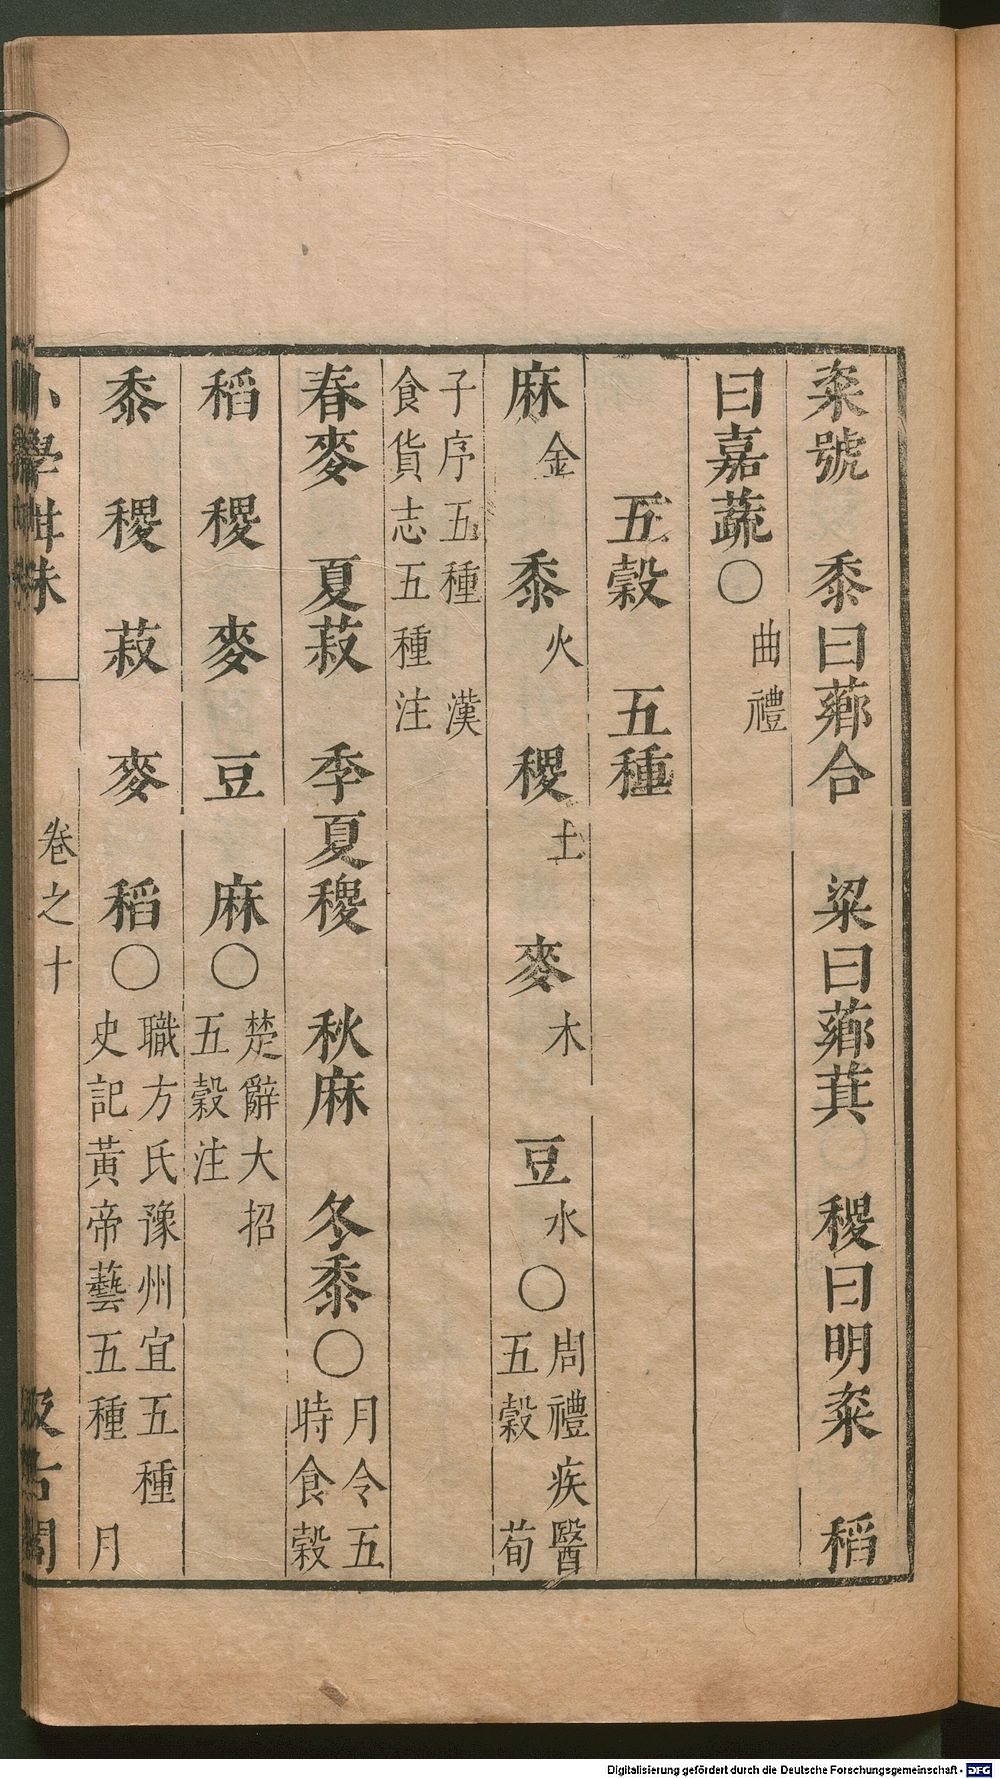 粢號　黍曰薌合　粱曰薌萁　稷曰明粢　稻
曰嘉蔬〇曲禮
五穀　五種
麻金　黍火　稷土　麥木　豆水〇周禮疾醫
五穀　荀
子序五種　漢
食貨志五種注
春麥　夏菽　季夏稷　秋麻　冬黍〇月令五
時食穀
稻　稷　麥　豆　麻〇楚辭大招
五穀注
黍　稷　菽　麥　稻〇職方氏豫州宜五種
史記黃帝藝五種　月
小學紺珠　卷之十　汲古閣
Digitalisierung gefördert durch die Deutsche Forschungsgemeinschaft - DFG